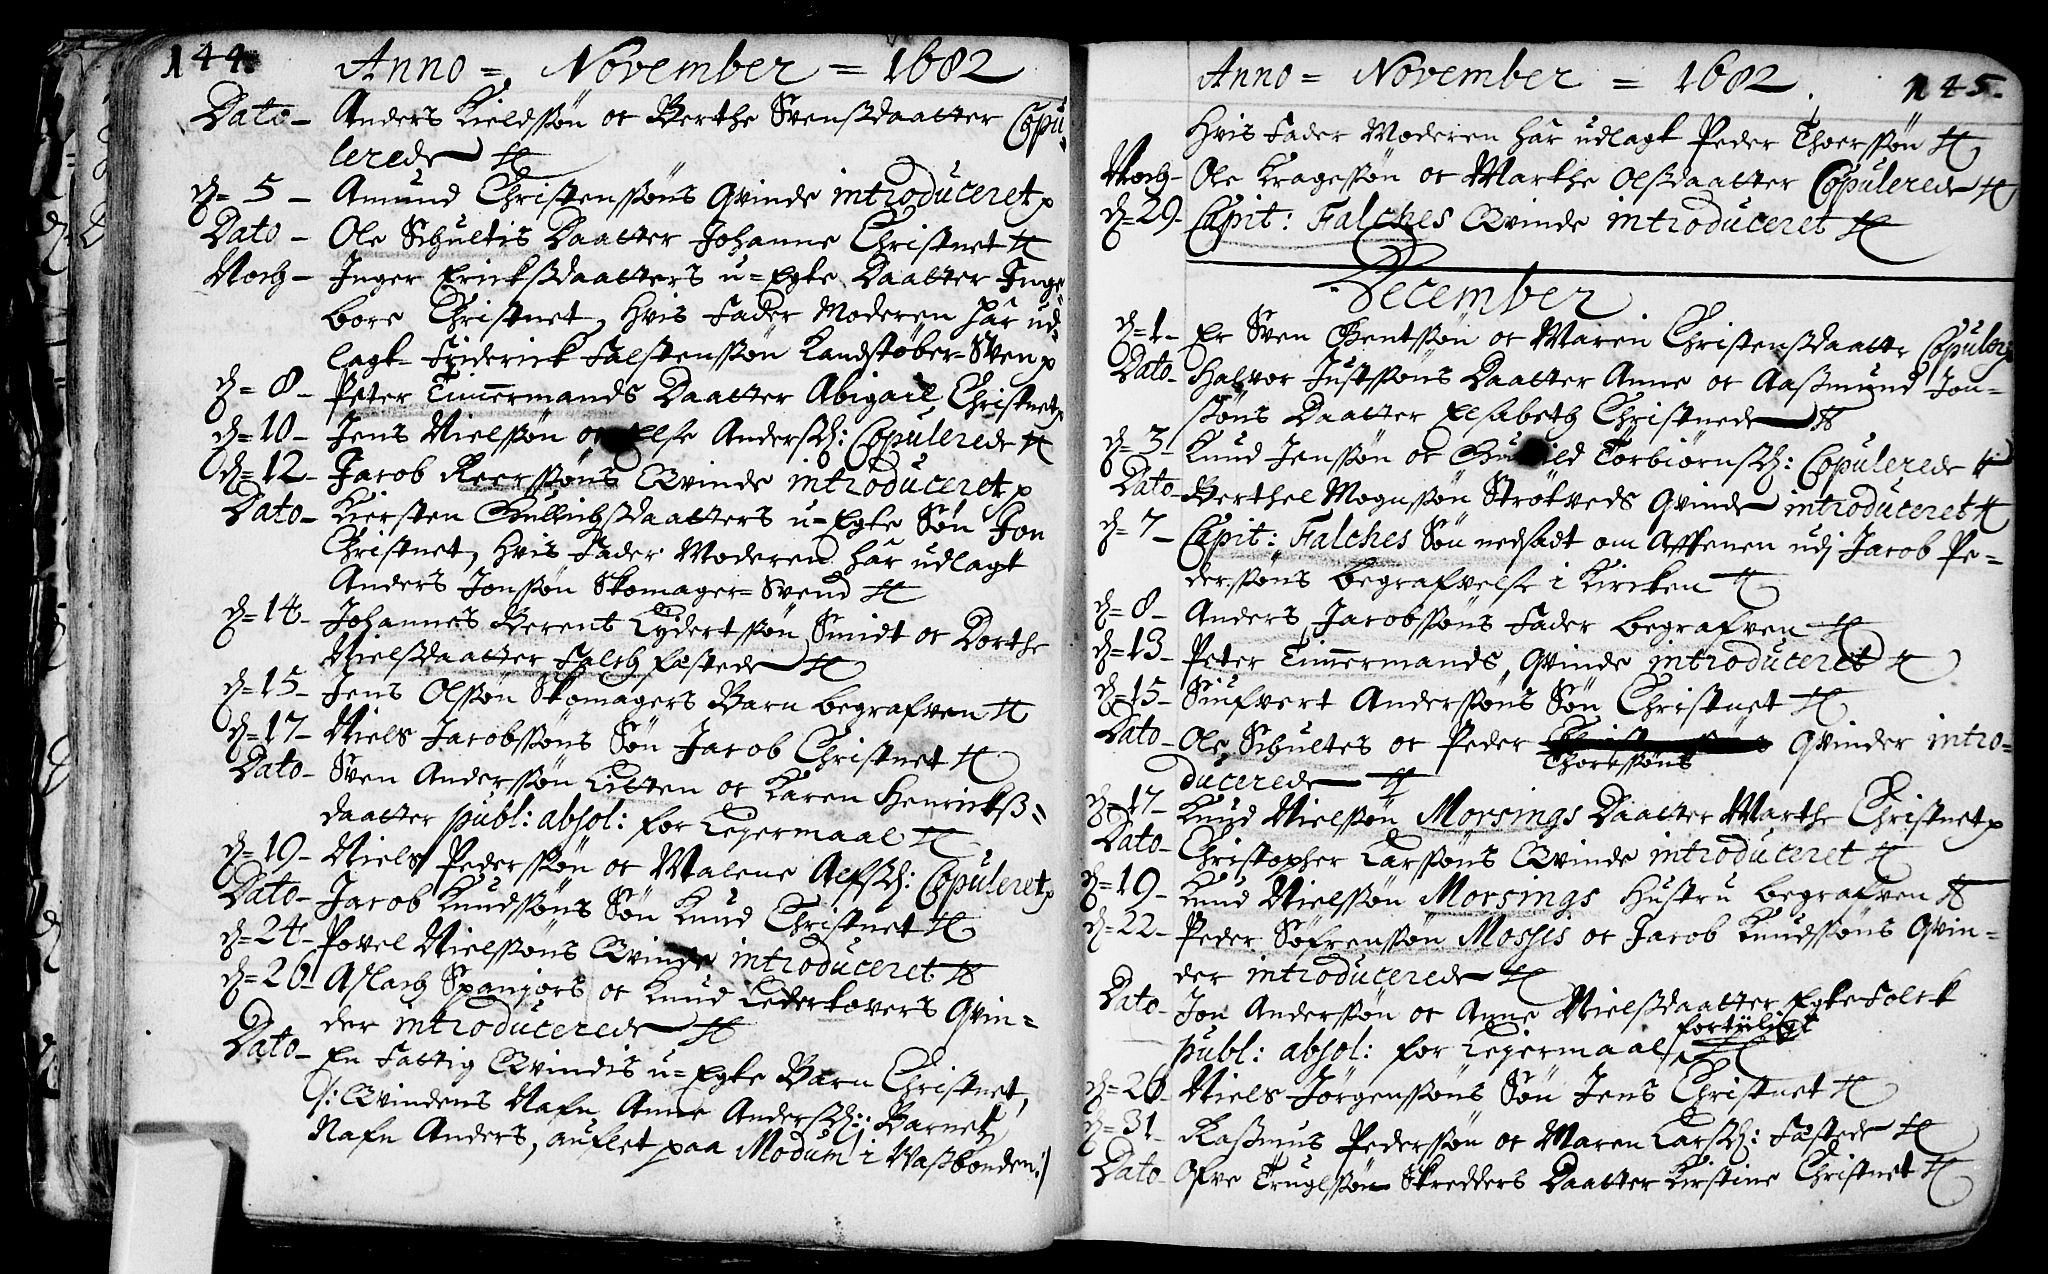 144.
Anno = November = 1682
Dato - Anders Kieldssøn oc Berthe Svenßdaatter Copu-
lerede
d= 5 - Amund Christenssøns Qvinde introduceret
Dato - Ole Schultis Daatter Johanne Christnet
Noch - Inger Erichsdaatters u-Egte Daatter Inge-
bore Christnet, Hvis Fader Moderen har ud-
lagt Friderick Falstenssøn Kandstøber-Sven
d= 8 - Peter Timermands Daatter Abigail Christnet
d= 10 - Jens Nielssøn oc Else Andersd: Copulerede
d= 12 - Jacob Reerssøns Qvinde introduceret
Dato - Kiersten Gullichsdaatters u-Egte Søn Jon
Christnet, Hvis Fader Moderen har udlagt
Anders Jonssøn Skomager-Svend
d= 14 - Johannes Berent Lydertssøn Smidt oc Dorthe
Nielßdaatter Falch fæstede
d= 15 - Jens Olssøn Skomagers Barn begrafven
d= 17 - Niels Jacobssøns Søn Jacob Christnet
Dato - Sven Anderssøn Litten oc Karen Henricks-
daatter publ: absol: for Lejermaal
d= 19 - Niels Pederssøn oc Malene Alfsd: Copuleret
Dato - Jacob Knudssøns Søn Knud Christnet
d= 24 - Povel Nielssøns Qvinde introduceret
d= 26 - Aslach Spanjors oc Knud Lederkovers Qvin-
der introducerede
Dato - En Fattig Qvindis u-Egte Barn Christnet,
/: Qvindens Nafn Anne Andersd: Barnets
Nafn Anders, auflet paa Modum i Vaßbonden :/
145.
Anno = November = 1682.
Hvis Fader Moderen har udlagt Peder Thoerssøn
Noch - Ole Kragessøn oc Marthe Olßdaatter Copulerede
d= 29 - Capit: Falches Qvinde introduceret
December
d= 1 - Er Sven Bentssøn oc Maren Christensdaatter Copuler
Dato - Halvor Justssøns Daatter Anne oc Aaßmund Jon-
søns Daatter Elsabeth Christnede
d= 3 - Knud Jenssøn oc Torbiørnsd: Copulerede
Dato - Berthel Mognssøn Strøtveds Qvinde introduceret
d= 7 - Capit: Falches Søn nedsadt om Afftenen udj Jacob Pe-
derssøns begrafvelse i Kircken
d= 8 - Anders Jacobssøns Fader begrafven
d= 13 - Peter Timermands Qvinde introduceret
d= 15 - Siufvert Anderssøns Søn Christnet
Dato - Ole Schultes oc Peder Thoressøns Qvinder intro-
ducerede
d= 17 - Knud Nielssøn Morsings Daatter Marthe Christnet
Dato - Christopher Larssøns Qvinde introduceret
d= 19 - Knud Nielssøn Morsings Hustru begrafven
d= 22 - Peder Søfrenssøn Mosses oc Jacob Knudssøns Qvin-
der introducerede
Dato - Jon Anderssøn oc Anne Nielsdaatter Egtefolck
publ: absol: for Lejermaal fortjiligt
d= 26 - Niels Jørgenssøns Søn Jens Christnet
d= 31 - Raßmus Pederssøn oc Maren Larsd: Fæstede
Dato - Ofve Truglssøn Skredders Daatter Kirstine Christnet